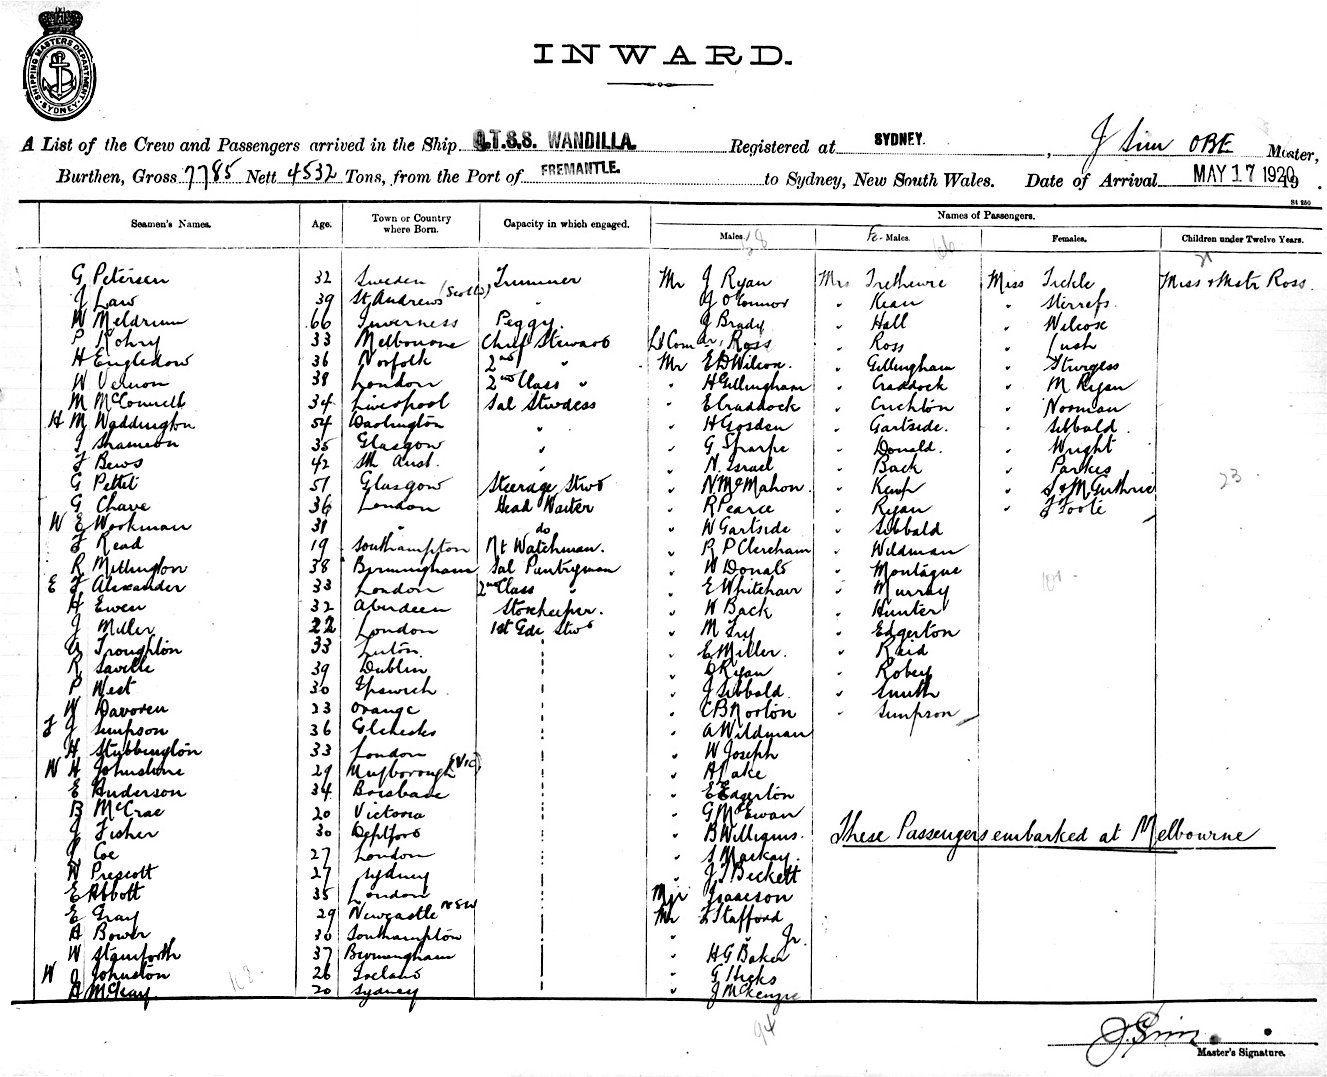 SHIPPING MASTERS DEPARTMENT SYDNEY
INWARD.
A List of the Crew and Passengers arrived in the Ship Q.T.S.S. WANDILLA. Registered at SYDNEY. , J Sim OBE Master,
Burthen, Gross 7785 Nett 4532 Tons, from the Port of FREMANTLE. to Sydney, New South Wales. Date of Arrival MAY 17 1920 19 .
St 250
Seamen's Names. Age. Town or Country where Born. Capacity in which engaged. Names of Passengers.
Males. Fe-Males. Females. Children under Twelve Years.
G Petersen 32 Sweden Trimmer Mr J Ryan Mrs Trethewie Miss Tickle Miss & Mstr Ross
J Law 39 St Andrews (Scotld) " " J O'Connor " Kean " Stirrefs
W Meldrum 66 Inverness Peggy. J Brady " Hall " Wilcose
P Rohry 33 Melbourne Chief Steward Lt Comdr, Ross " Ross " Lush
H Engledow 36 Norfolk 2nd " Mr E B Wilson. " Gillingham " Sturgess
W Vernon 38 London 2nd Class " " H Gillingham " Craddock " M Ryan
M McConnell 34 Liverpool Sal Stwdess " E Craddock " Crichton " Norman
H M Waddington 54 Darlington " " H Gosden " Gartside. " Sibbald.
J Shannon 35 Glasgow " " G Sharpe " Donald. " Wright
J Bews 42 Sth Aust. " " N. Israel " Back " Parkes
G Pettet 51 Glasgow Steerage Stwd " N McMahon. " Kemp " S & M Guthrie
G Chave 36 London Head Waiter " R Pearce " Ryan " J Foote
W E Workman 31 " do " W Gartside " Sibbald
J Read 19 Southampton Nt Watchman. " R P Clereham " Wildman
R Millington 38 Birmingham Sal Pantryman " W Donald " Montague
E J Alexander 33 London 2nd Class " " E Whitehair " Murray
H Ewen 32 Aberdeen Storekeeper. " W Back " Hunter
J Miller 22 London 1st Gde Stwd " M Fry " Edgerton
Troughton 33 Luton. " E Miller. " Reid
R Saville 39 Dublin " Ryan " Robey
P West 30 Ipswich. " J Sibbald. " Smith
W Davoren 23 Orange " C B Norton " Simpson
J J Simpson 36 " A Wildman
H Stubbington 33 London " W Joseph
W H Johnstone 29 Maryborough (Vic) " A Lake
E Anderson 34 Brisbane " E Edgerton
B McCrae 20 Victoria " G McEwan
J Fisher 30 Deptford " B Williams.
Coe 27 London " S Mackay.
These Passengers embarked at Melbourne
W Prescott 27 Sydney " J J Beckett
E Abbott 35 London Mjr Isaacson
E Gray 29 Newcastle NSW Mr J Stafford
A Bower 30 Southampton " " Jr.
W Stamforth 37 Birmingham " H G Baker
W J Johnston 26 Ireland " G Hicks
A McKay. 20 Sydney " J McKenzie
94
J. Sim
Master's Signature.